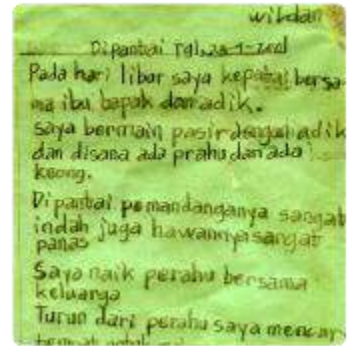 wildan
Dipantai Tgl,
Pada hari libur saya kepantai bersa
ma ibu bapak dan adik.
saya bermain pasir dengan adik
dan disana ada prahu dan ada
keong.
Dipantai pemandanganya sangat
indah juga hawannya sangat
panas
Saya naik perahu bersama
keluarga
Turun dari perahu saya mencari
tempat untuk